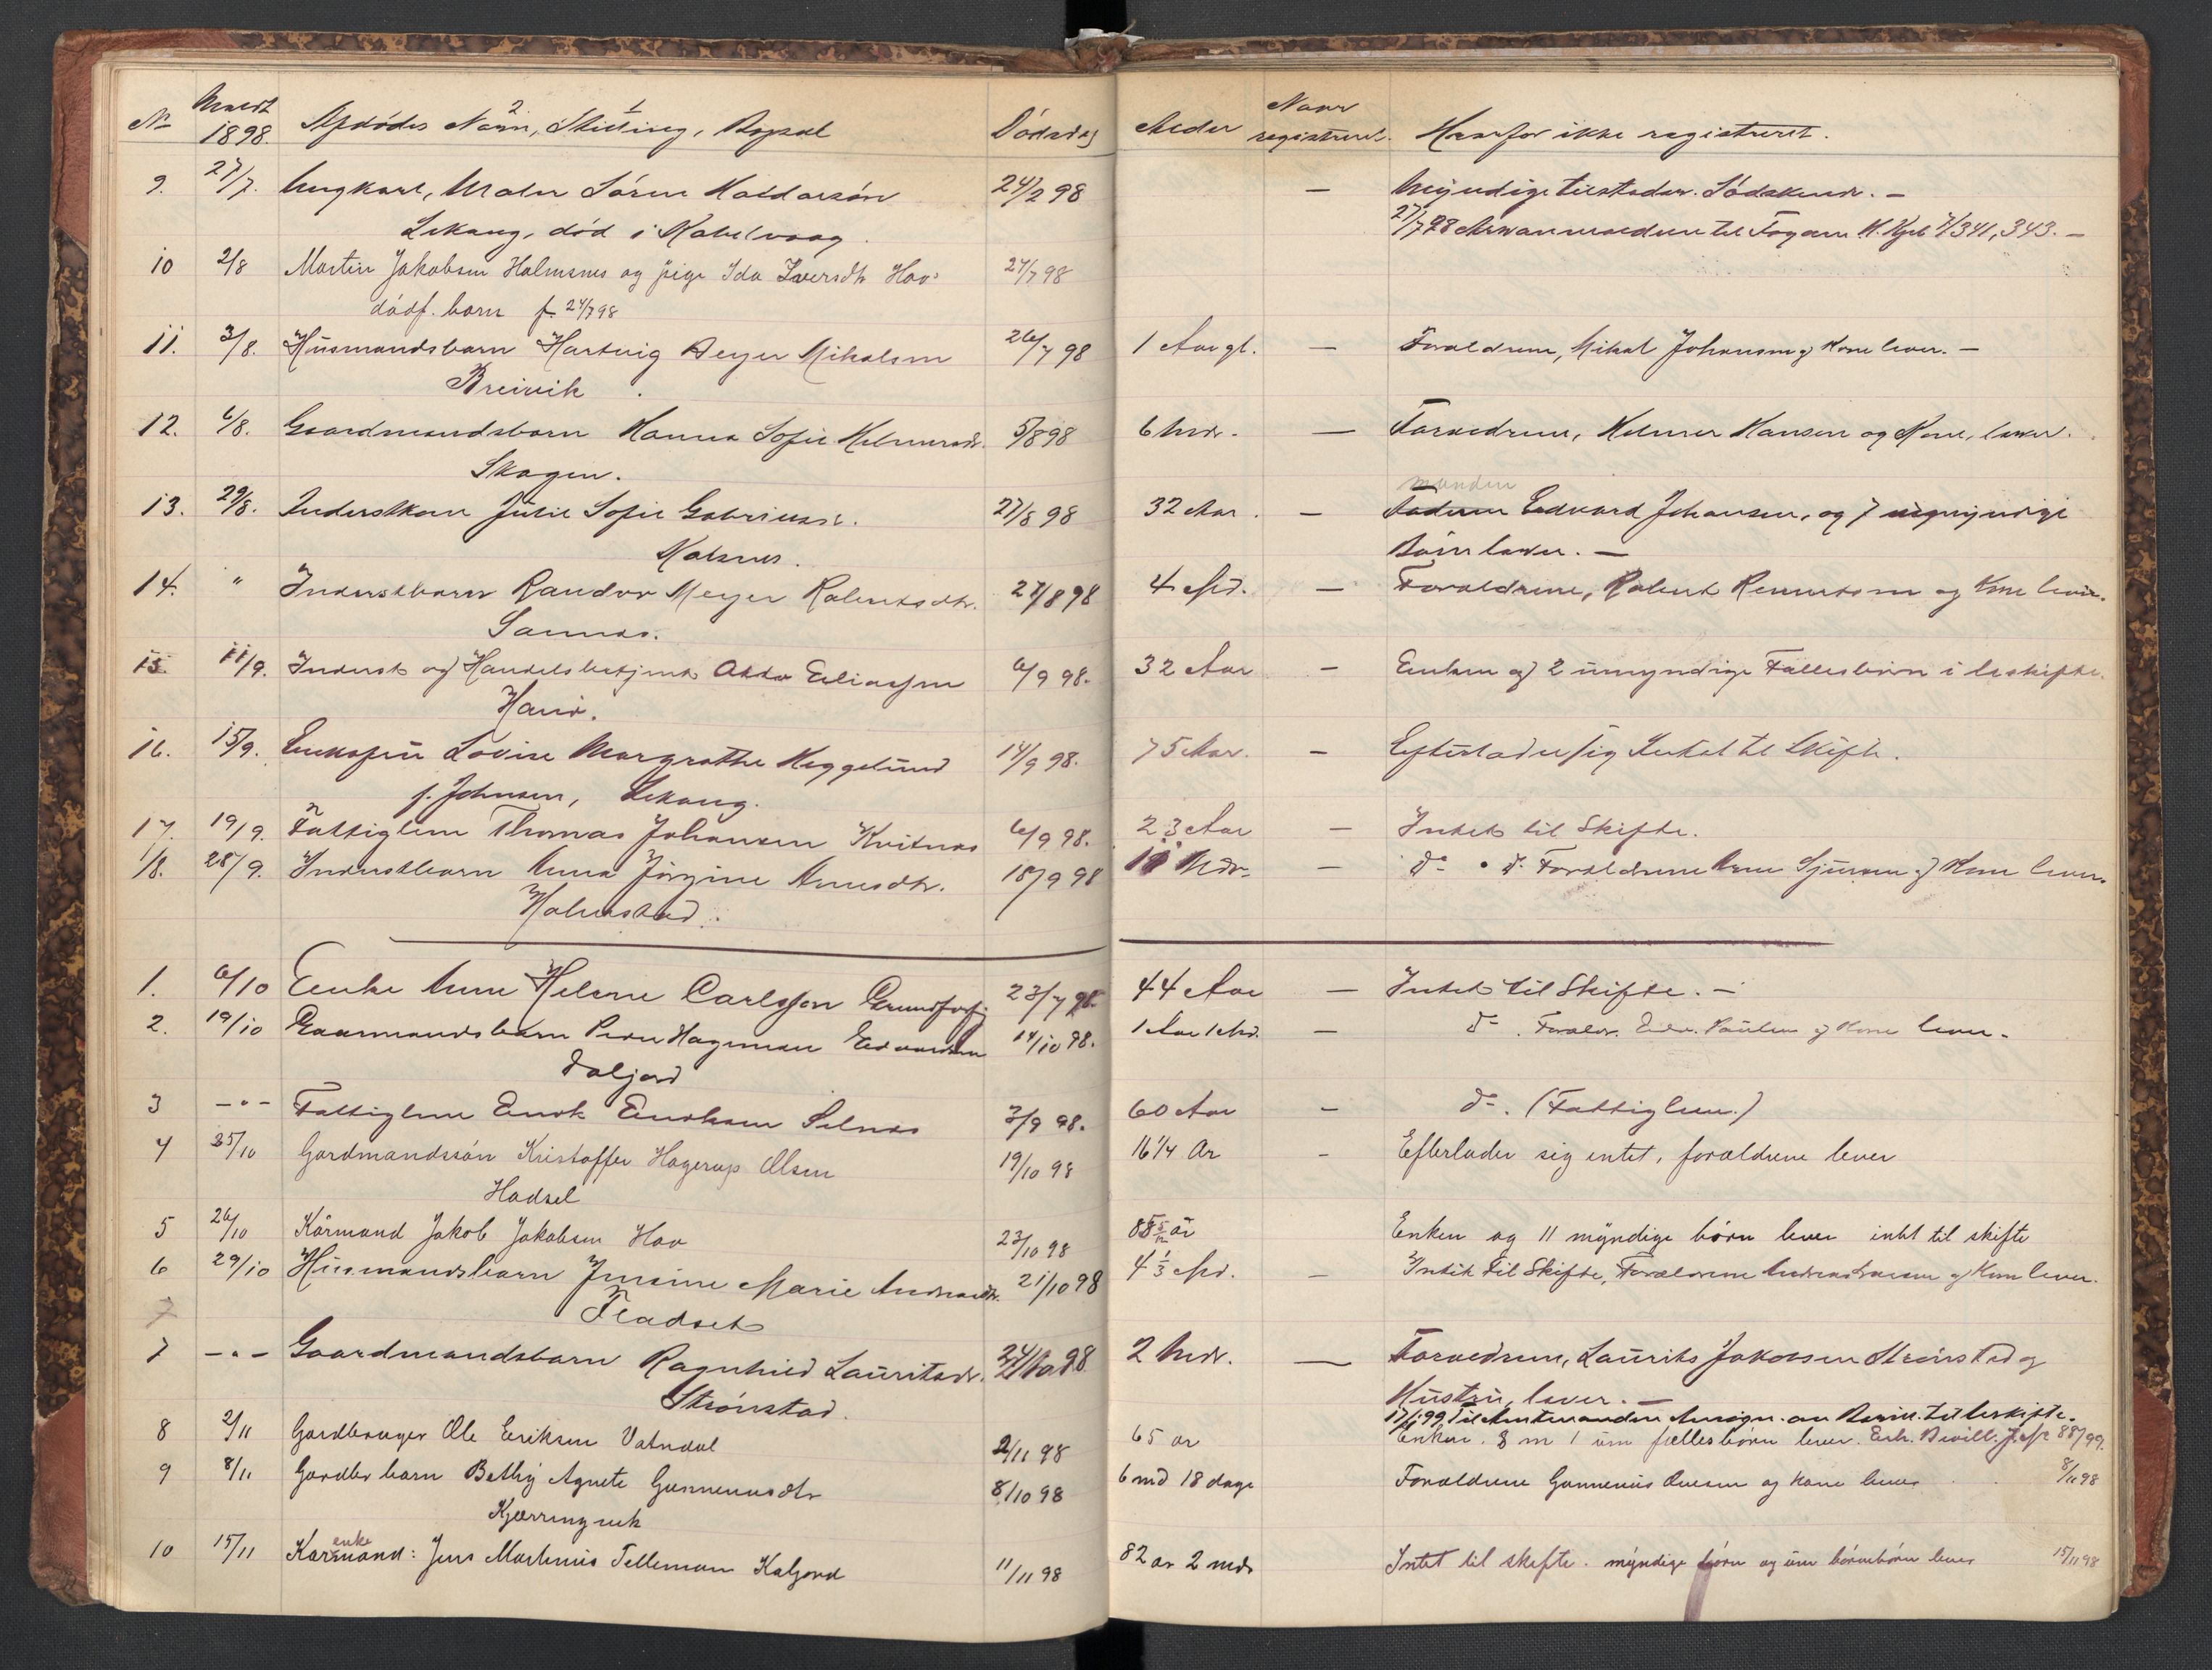 No Meldt 1898. Afdödes Navn, Stilling, Bopæl Dödsdag Alder Naar registreret. Hvorfor ikke registreret.
9. 27/7. Ungkarl, Maler Sören Haldorsön 24/2 98 — Myndige tilstede. Södskende. —
Lekang, död i Kabelvaag. 27/7 98 til Fogden 341, 343. —
10 2/8 Martin Jakobsen Holmsnes og pige Ida Iversdtr Hov: 24/7 98
dödf. barn f. 24/7 98
11. 3/8. Husmandsbarn Hartvig Meyer Mikalsen 26/7 98 1 Aar gl. — Forældrene, Mikal Johansen og Kone lever. —
Breivik.
12. 6/8. Gaardmandsbarn Hanna Sofie Helmersdr. 5/8 98 6 Mdr. — Forældrene, Helmer Hansen og Kone, lever.
Skogen.
manden
13. 29/8. Inderstkone Julie Sofie 27/8 98 32 Aar. — Faderen Edvard Johansen, og 7 umyndige
Kalsnes. Börn lever. —
14. " Inderstbarn Randor Meyer Robertsdtr. 27/8 98 4 Md. — Forældrene, Robert og Kone lever.
Sannes.
15 11/9. Inderst og Handelsbetjent Otto Eliassen 6/9 98. 32 Aar — Enken og 2 umyndige Fællesbörn i beskifte.
Hanö.
16. 15/9. Enkefru Lovise Margrethe Heggelund 14/9 98. 75 Aar. — Efterlader sig Intet til Skifte.
f. Johnsen, Lekang.
17. 19/9. Fattiglem Thomas Johansen Kvitnes 6/9 98. 23 Aar — Intet til Skifte.
18. 28/9. Inderstbarn Anna Jörgine Arnesdtr. 18/9 98 11 Mdr. — do do Forældrene Arne Sjursen og Kone lever.
Holmstad.
1. 6/10 Enke Anne Helene Carlsson Grundforfj 23/7 98. 44 Aar — Intet til Skifte. —
2. 19/10 Gaarmandsbarn Peder Hagerman Edvardsen 14/10 98. 1 Aar 1 Md. — do. Forældr. Edv. Paulsen og Kone lever.
Daljord
3 —"— Fattiglem Enok Enoksen Selnes 3/9 98. 60 Aar — do. (Fattiglem.)
4 25/10 Gardmandssön Kristoffer Hagerup Olsen 19/10 98 16 1/4 Ar - Efterlader sig intet, forældrene lever
Hadsel
5 26/10 Kårmand Jakob Jakobsen Hov 23/10 98 88 5/12 år Enken og 11 myndige börn lever intet til skifte
6 29/10 Husmandsbarn Jensine Marie Andreasdtr. 21/10 98 4 1/3 Md. — Intet til Skifte, Forældrene og Kone lever.
7 Fladset
7 —"— Gaardmandsbarn Ragnhild Lauritsdr. 24/10 98 2 Mdr. — Forældrene, Laurits Jakobsen Strönstad og
Strönstad. Hustru, lever. —
17/1 99 Til Amtmanden
8 2/11 Gardbruger Ole Eriksen Vatndal 2/11 98 65 ar Enken. 8 m 1 um fællesbörn lever. 88/99.
9 8/11 Gardbr barn Bethy Agnete Gunneriusdtr 8/10 98 6 md 18 dage Forældrene Gunnerius Olsen og kone lever 8/11 98
Kjærringvik
10 15/11 Karmand: enke Jens Martinus Tellemann Kaljord 11/11 98 82 ar 2 mdr Intet til skifte. myndige börn og um börnebörn lever 15/11 98